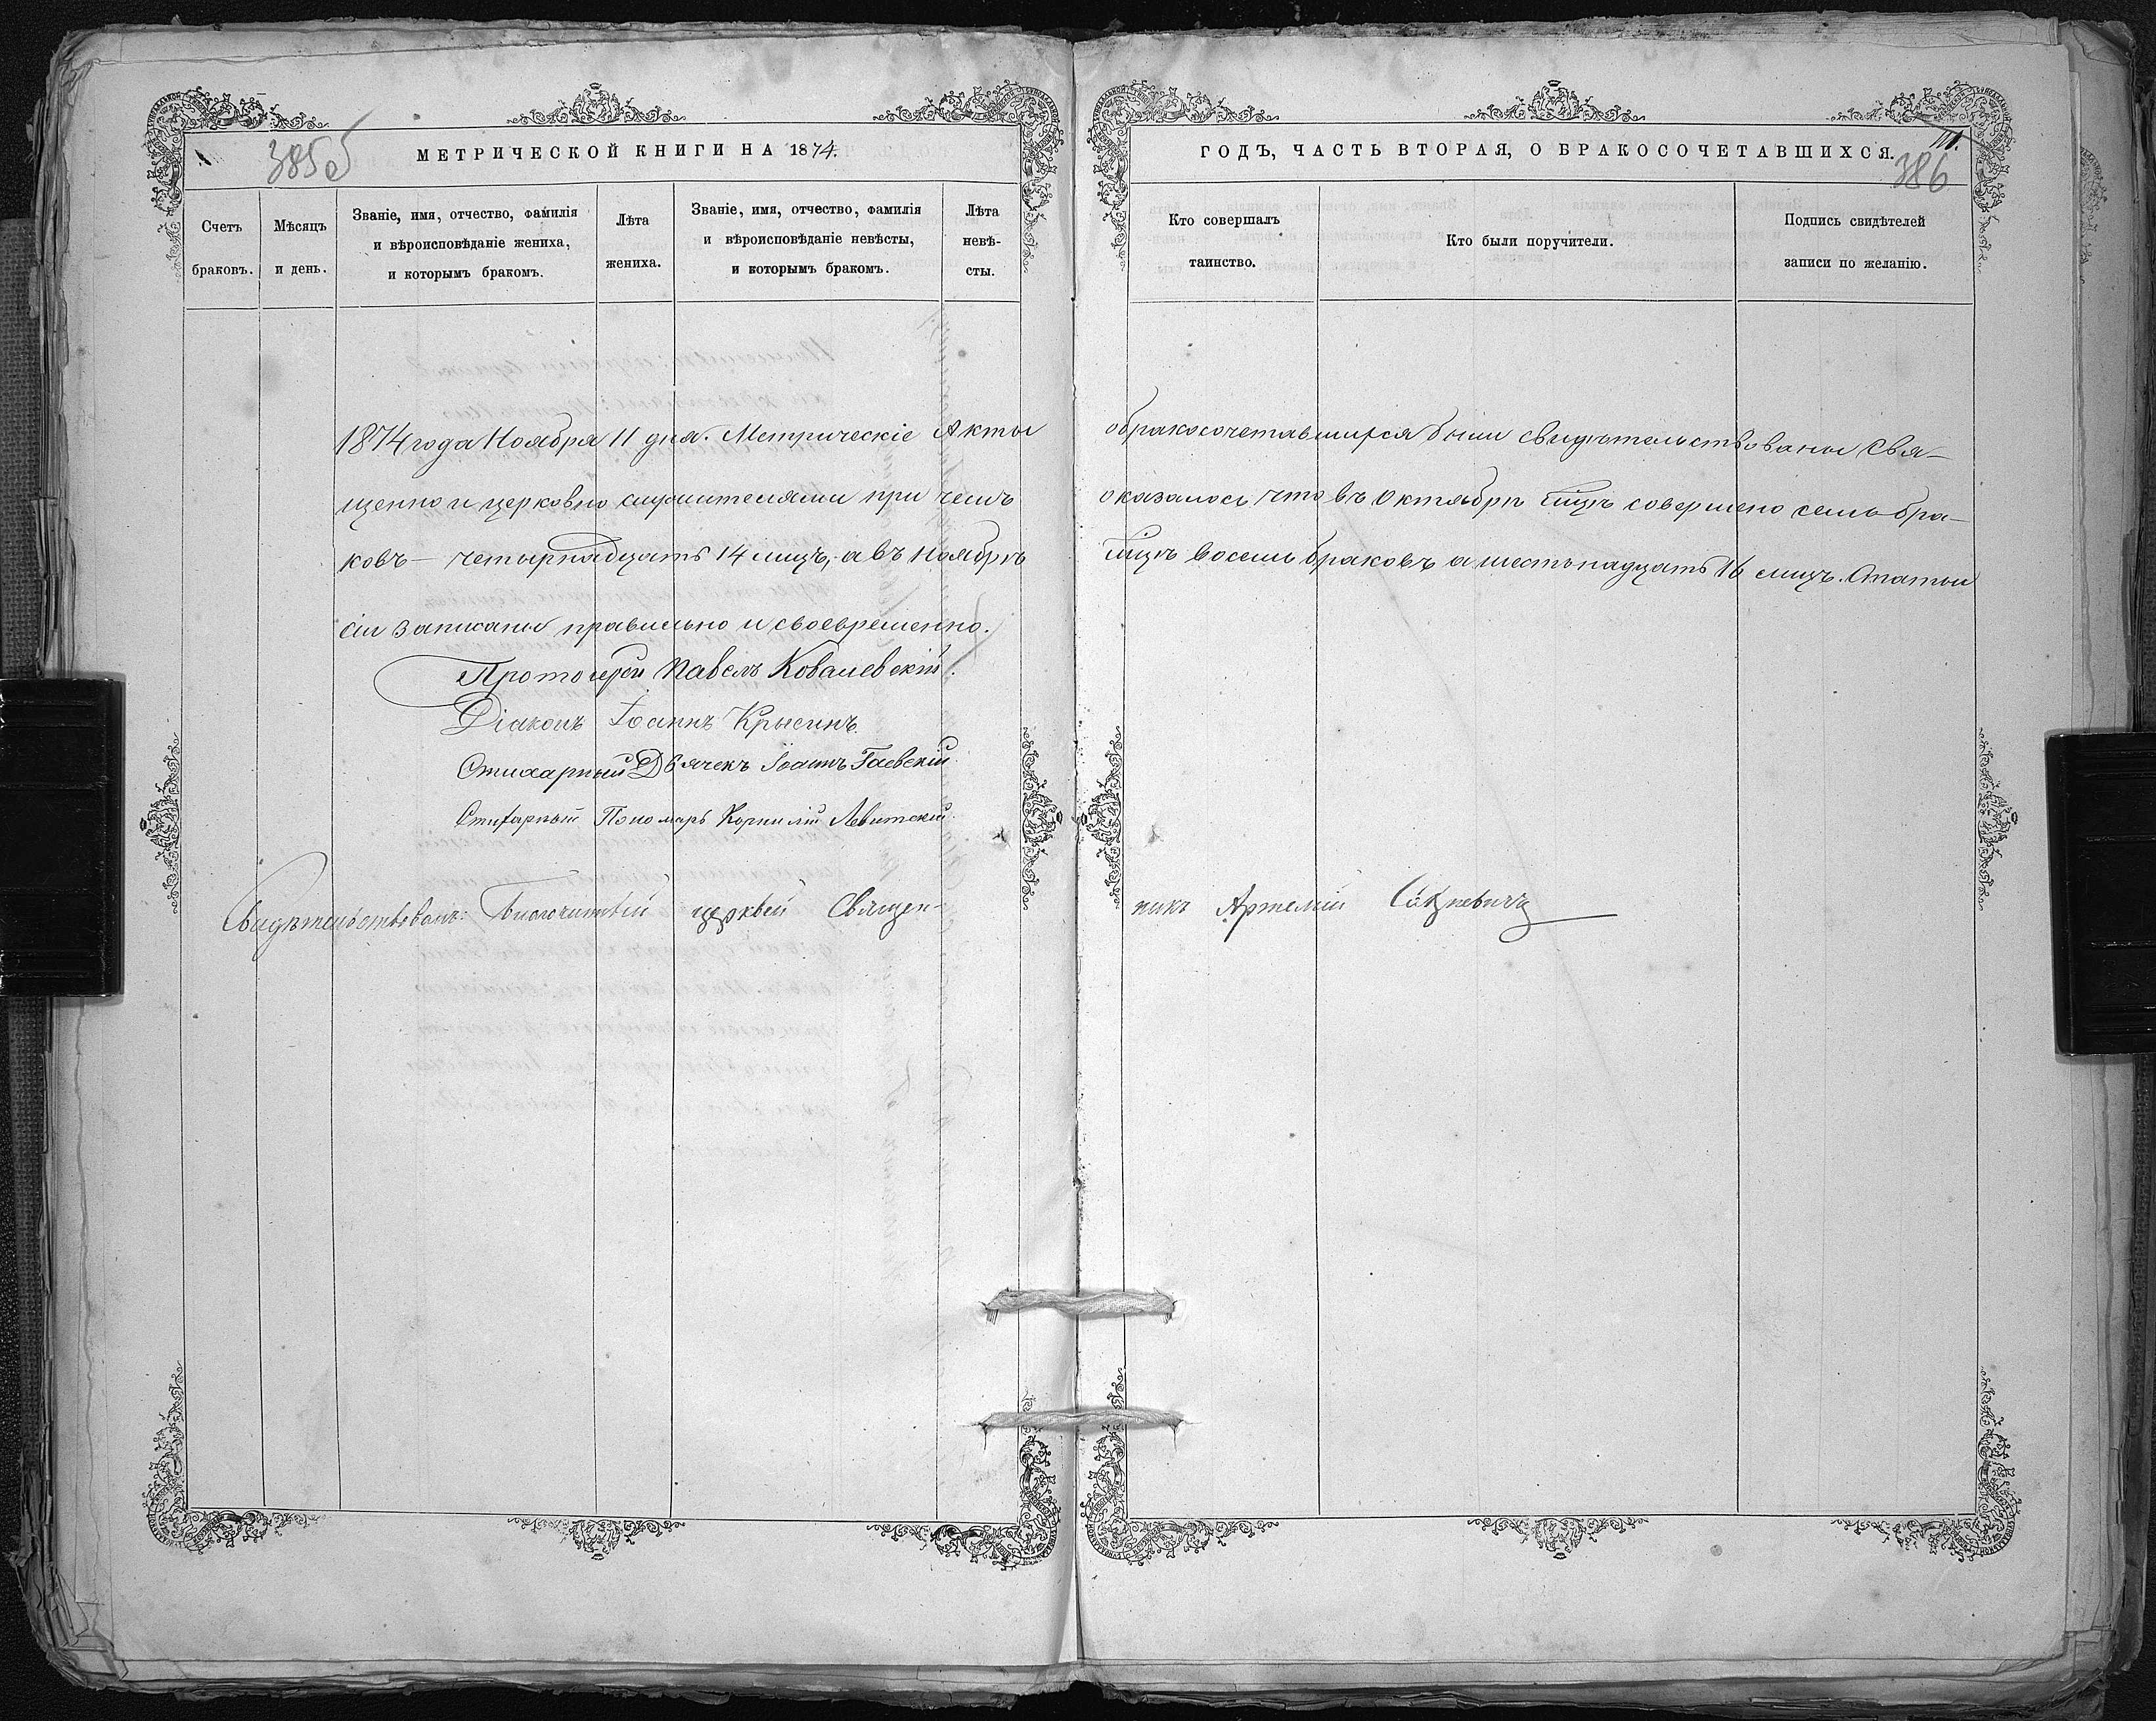 385об
МЕТРИЧЕСКОЙ КНИГИ НА 1874.
Счетъ браковъ.
Мѣсяцъ и день.
Званіе, имя, отчество, фамилія
и вѣроисповѣданіе жениха,
и которымъ бракомъ.
Лѣта жениха.
Званіе, имя, отчество, фамилія
и вѣроисповѣданіе невѣсты,
и которымъ бракомъ.
Лѣта
невѣ-
сты.
1874 года Ноября 11 дня. Метрическіе Акты
щенно и церковно служителями при чемъ
ковъ — четырнадцать 14 лицъ, а въ Ноябрѣ
сіи записаны правильно и своевременно.
Протоіерей Павелъ Ковалевскій.
Діаконъ Іоаннъ Крысинъ.
Стихарный Дьячекъ Іоаннъ Гаевскій.
Стихарный Пономарь Корнилій Левитскій.
Свидѣтельствовалъ: Благочинный церквей Священ-
ГОДЪ, ЧАСТЬ ВТОРАЯ, О БРАКОСОЧЕТАВШИХСЯ.
386
Кто совершалъ
таинство.
Кто были поручители.
Подпись свидѣтелей
записи по желанію.
о бракосочетавшихся были свидѣтельствованы Свя-
оказалось что въ Октябрѣ мцѣ совершено семь бра-
мцѣ восемь браковъ а шестьнадцать 16 лицъ. Статьи
никъ Артемій